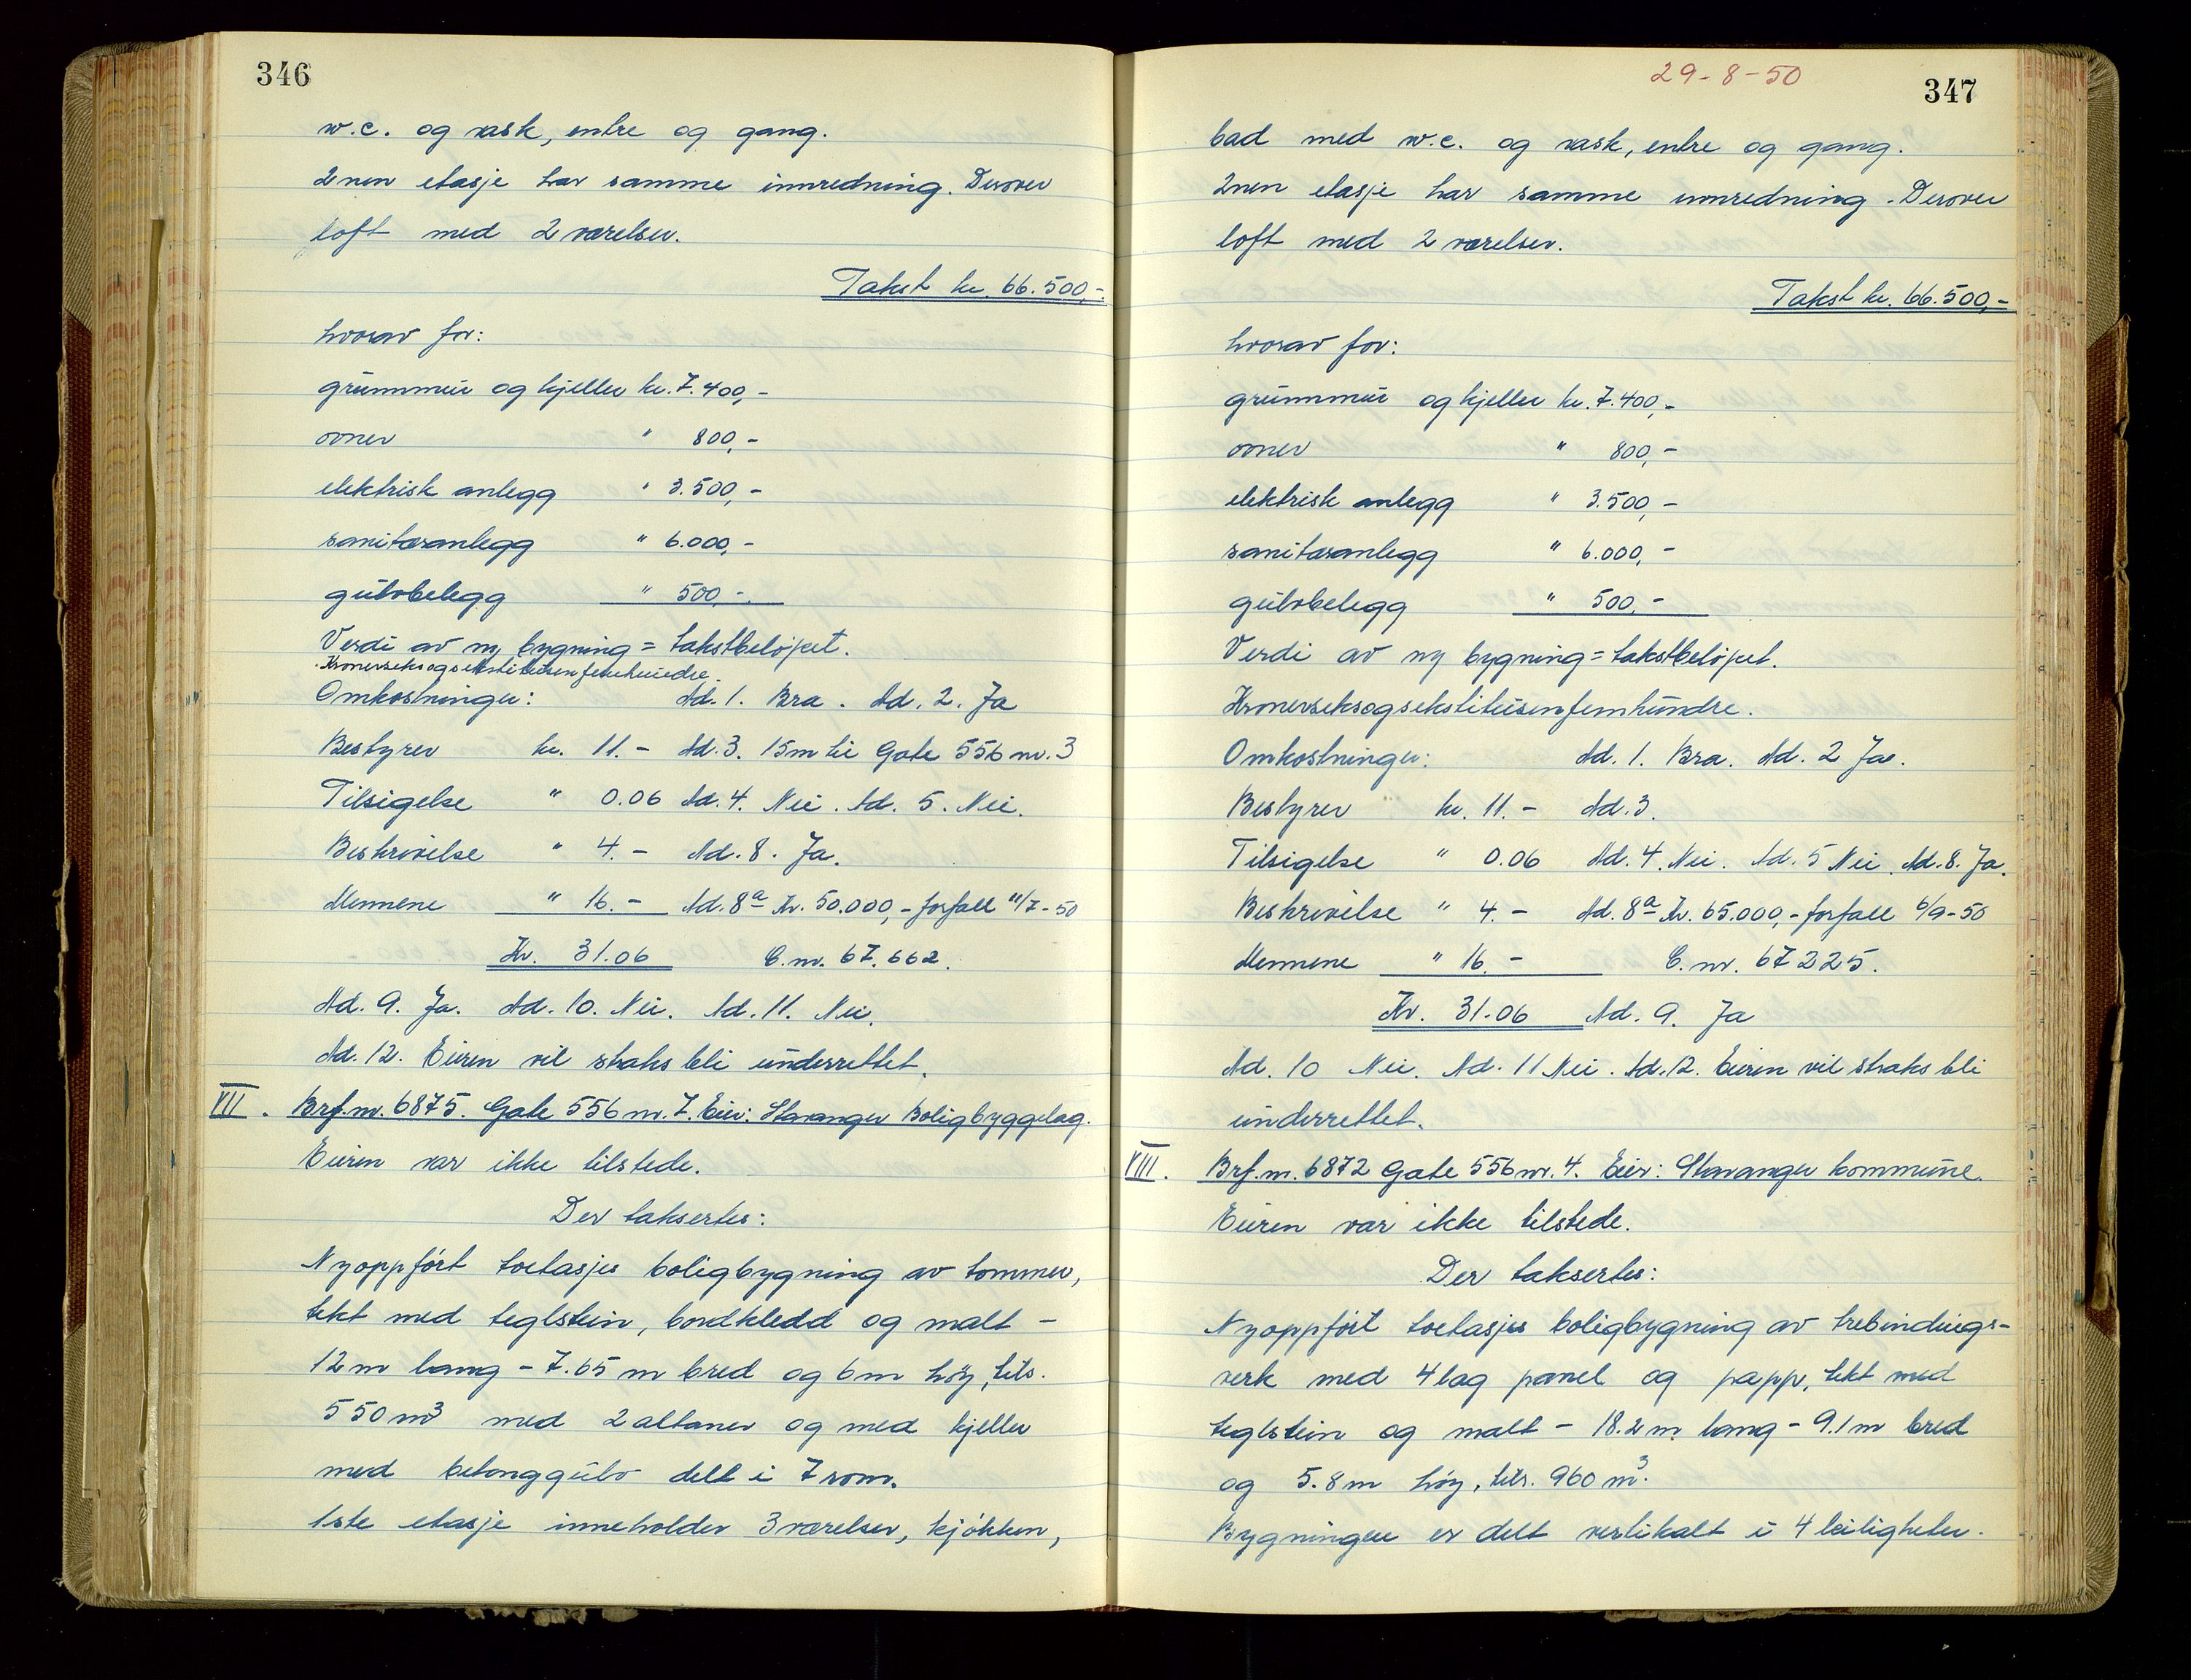 346
w.c. og vask, entre og gang.
2nen etasje har samme innredning. Derover
loft med 2 værelser.
Takst kr. 66.500,-
hvorav for:
grunnmur og kjeller kr. 7.400,-
ovner " 800,-
elektrisk anlegg " 3.500,-
sanitæranlegg " 6.000,-
gulvbelegg " 500,-
Verdi av ny bygning = takstbeløpet.
Kronerseksogsekstitusenfemhundre.
Omkostninger: Ad. 1. Bra. Ad. 2. Ja
Bestyrer kr. 11.- Ad. 3. 15m til Gate 556 nr. 3
Tilsigelse " 0.06 Ad. 4. Nei. Ad. 5. Nei.
Beskrivelse " 4.- Ad. 8. Ja.
Mennene " 16.- Ad. 8a Kr. 50.000,- forfall 11/7-50
Kr. 31.06 C.nr. 67.662.
Ad. 9. Ja. Ad. 10. Nei. Ad. 11. Nei.
Ad. 12. Eieren vil straks bli underrettet.
VII. Brf.nr. 6875. Gate 556 nr. 7. Eier: Stavanger Boligbyggelag.
Eieren var ikke tilstede.
Der taksertes:
Nyoppført toetasjes boligbygning av tømmer,
tekt med teglstein, bordkledd og malt -
12 m lang - 7.65 m bred og 6 m høy, tils.
550 m3 med 2 altaner og med kjeller
med betonggulv delt i 7 rom.
1ste etasje inneholder 3 værelser, kjøkken,
29-8-50
347
bad med w.c. og vask, entre og gang.
2nen etasje har samme innredning. Derover
loft med 2 værelser.
Takst kr. 66.500,-
hvorav for:
grunnmur og kjeller kr. 7.400,-
ovner " 800,-
elektrisk anlegg " 3.500,-
sanitæranlegg " 6.000,-
gulvbelegg " 500,-
Verdi av ny bygning = takstbeløpet.
Kronerseksogsekstitusenfemhundre.
Omkostninger: Ad. 1. Bra. Ad. 2 Ja.
Bestyrer kr. 11.- Ad. 3.
Tilsigelse " 0.06 Ad. 4. Nei. Ad. 5 Nei. Ad. 8. Ja.
Beskrivelse " 4.- Ad. 8a Kr. 65.000,- forfall 6/9-50
Mennene " 16.- C.nr. 67225.
Kr. 31.06 Ad. 9. Ja
Ad. 10 Nei. Ad. 11 Nei. Ad. 12. Eieren vil straks bli
underrettet.
VIII. Brf.nr. 6872 Gate 556 nr. 4. Eier: Stavanger kommune.
Eieren var ikke tilstede.
Der taksertes:
Nyoppført toetasjes boligbygning av trebindings-
verk med 4 lag panel og papp, tekt med
teglstein og malt - 18.2 m lang - 9.1 m bred
og 5.8 m høy, tils. 960 m3.
Bygningen er delt vertikalt i 4 leiligheter.